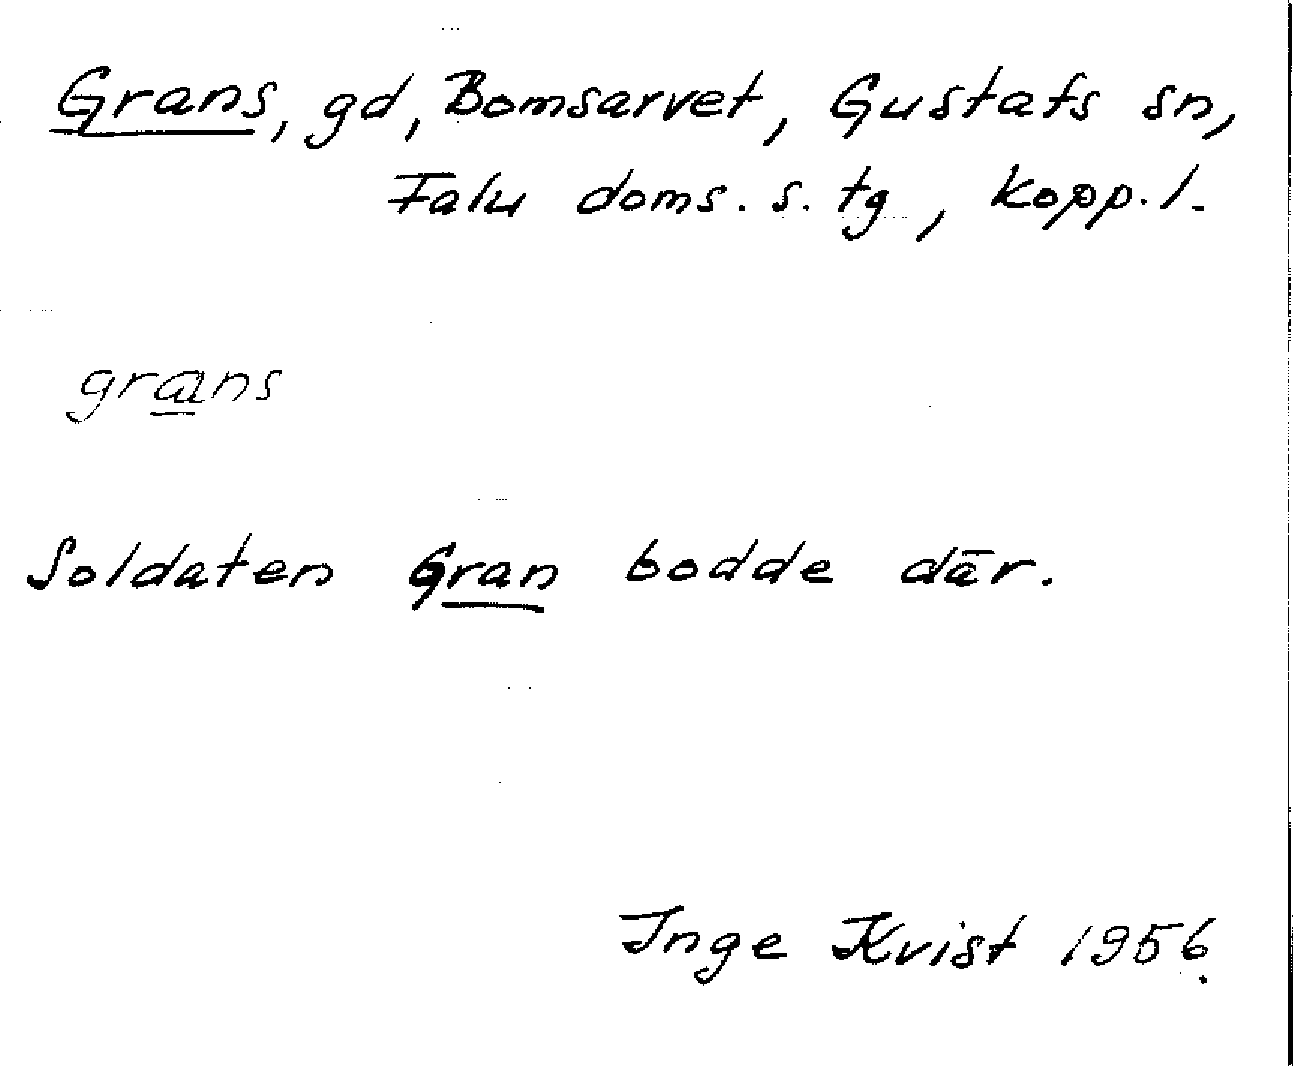 Grans, gd, Bomsarvet, Gustafs sn,
Falu doms. s. tg, Kopp. l.
grans
Soldaten Gran bodde där.
Inge Kvist 1956.